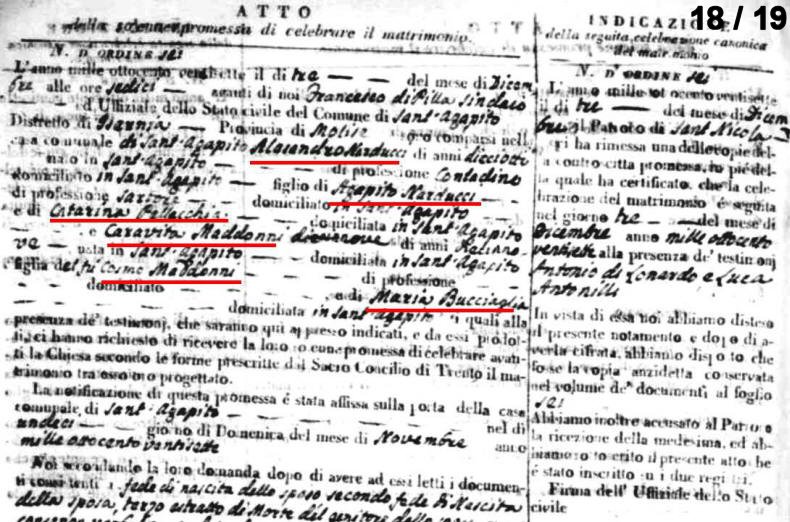 ATTO
della solenne promessa di celebrare il matrimonio.
N. D'ORDINE sei
L'anno mille ottocento ventisette il dì tre del mese di Dicem
bre alle ore sedici avanti di noi Francesco di Pilla Sindaco
d Uffiziale dello Stato civile del Comune di Sant'Agapito
Distretto di Isernia Provincia di Molise sono comparsi nella
casa comunale di Sant'Agapito Alesandro Narducci di anni diciotto
nato in Sant'Agapito di professione Contadino
domiciliato in Sant'Agapito figlio di Agapito Narducci
di professione Sartore domiciliato in Sant'Agapito
e di Catarina Pellacchia domiciliata in Sant'Agapito
e Caravita Maddonni di anni
ve nata in Sant'Agapito domiciliata in Sant'Agapito
figlia del fù Cosmo Maddonni di professione
domiciliato e di Maria Bucciaglia
domiciliata in Sant'Agapito i quali alla
presenza de' testimonj, che saranno quì appresso indicati, e da essi prodot-
ti, ci hanno richiesto di ricevere la loro solenne promessa di celebrare avan-
ti la Chiesa secondo le forme prescritte dal Sacro Concilio di Trento il ma-
trimonio tra essi loro progettato.
La notificazione di questa promessa è stata affissa sulla porta della casa
comunale di Sant'Agapito nel dì
undeci giorno di Domenica del mese di Novembre anno
mille ottocento ventisette
Noi secondando la loro domanda dopo di avere ad essi letti i documen-
ti consistenti fede di nascita dello sposo secondo fede di Nascita
della sposa, terzo estratto di Morte del genitore della
18 / 19
INDICAZIONE
della seguita celebrazione canonica
del matrimonio
N. D'ORDINE sei
L'anno mille ottocento ventisette
il dì tre del mese di Dicem
bre il Paroco di Sant Nicola
ci ha rimessa una delle copie del-
la controscritta promessa, in piè del-
la quale ha certificato, che la cele-
brazione del matrimonio è seguita
nel giorno tre del mese di
Dicembre anno mille ottocento
ventisette alla presenza de' testimonj
Antonio di Lonardo e Luca
Antonilli
In vista di essa noi abbiamo disteso
il presente notamento e dopo di a-
verla cifrata, abbiamo disposto che
fosse la copia anzidetta conservata
nel volume de' documenti al foglio
sei
Abbiamo inoltre accusato al Paroco
la ricezione della medesima, ed ab-
biamo sottoscritto il presente atto che
è stato inscritto su i due registri.
Firma dell' Uffiziale dello Stato
civile